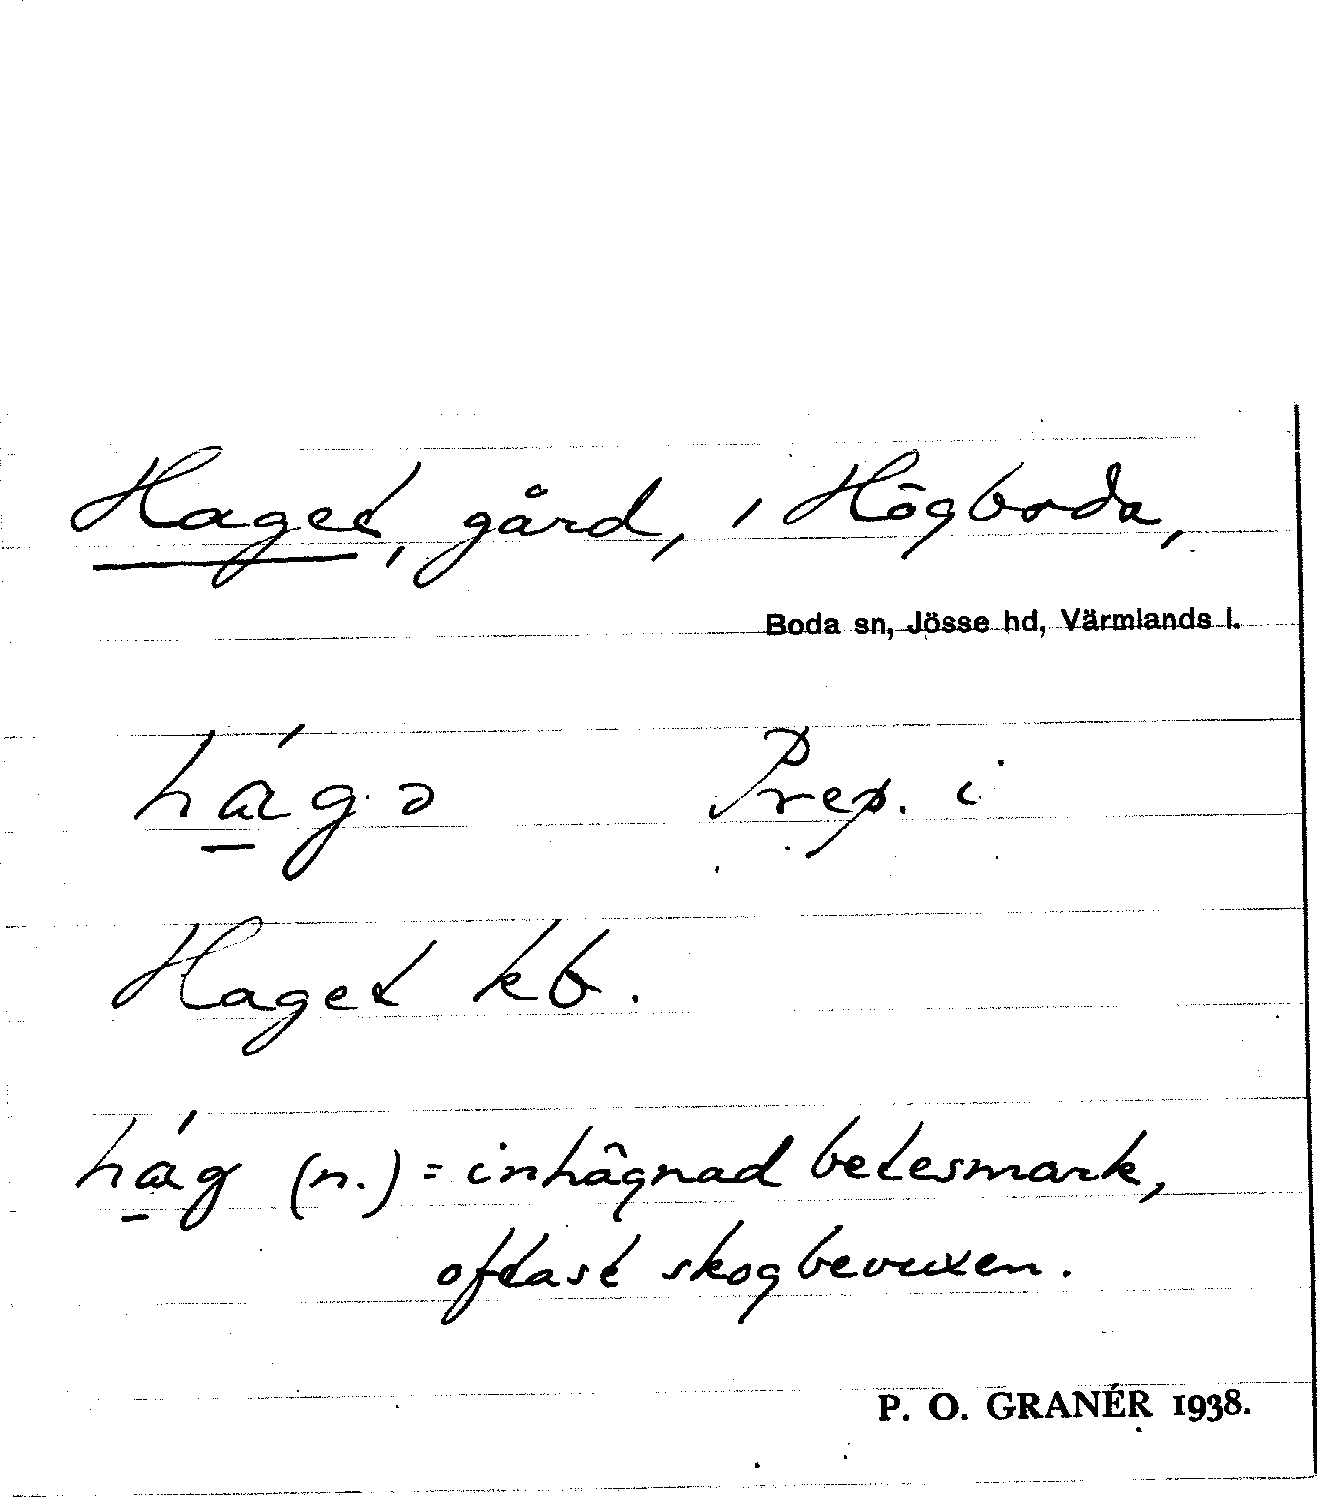 Haget, gård, i Högboda,
Boda sn, Jösse hd, Värmlands l.
há̱gə Prep. i
Haget kb.
há̱g (n.) = inhägnad betesmark,
oftast skogbevuxen.
P. O. GRANÉR 1938.